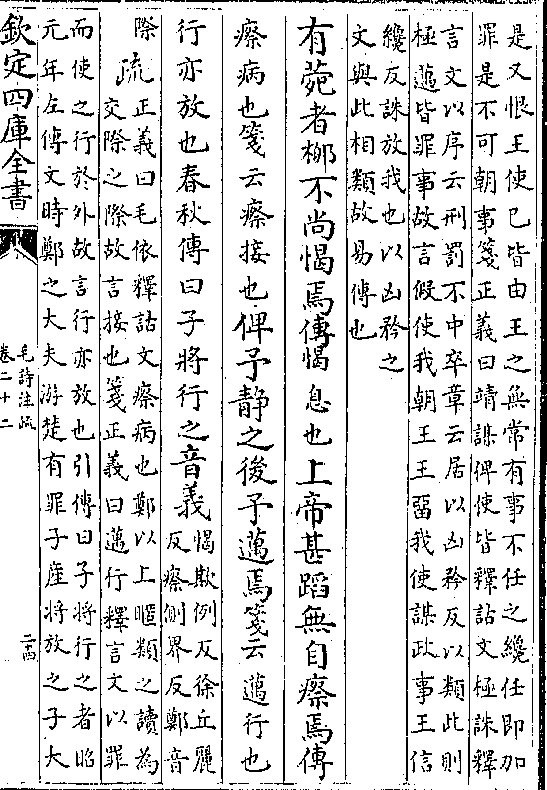 是又恨王使已皆由王之無常有事不任之纔任即加
罪是不可朝事箋正義曰靖謀俾使皆釋詁文極誅釋
言文以序云刑罰不中卒章云居以凶矜反以類此則
極邁皆罪事故言假使我朝王王留我使謀政事王信
纔反誅放我也以凶矜之
文與此相類故易傳也
有菀者柳不尚愒焉傳愒息也上帝甚蹈無自瘵焉傳
瘵病也箋云瘵接也俾予静之後予邁焉箋云邁行也
行亦放也春秋傳曰子將行之音義愒欺例反徐丘麗
反瘵側界反鄭音
際疏正義曰毛依釋詁文瘵病也鄭以上暱類之讀為
交際之際故言接也箋正義曰邁行釋言文以罪
而使之行於外故言行亦放也引傳曰子將行之者昭
元年左傳文時鄭之大夫游楚有罪子産將放之子大
欽定四庫全書
毛詩注疏
卷二十二
二西